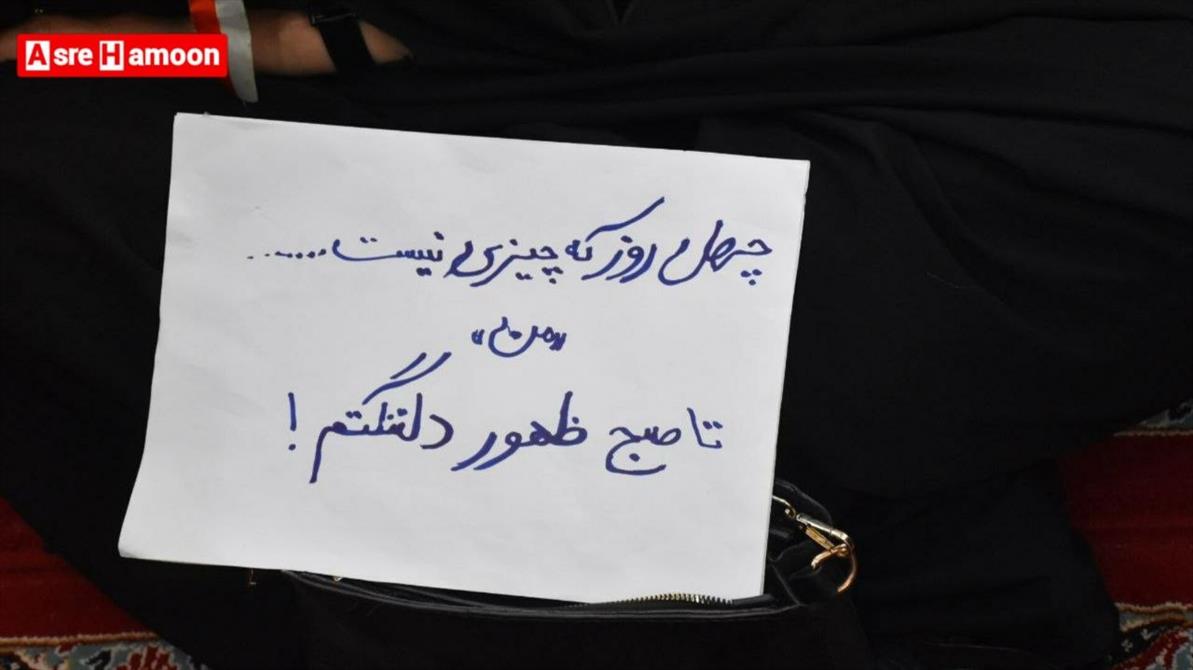 Asre Hamoon
چهل روز که چیزی نیست.......
"من"
تا صبح ظهور دلتنگتم!